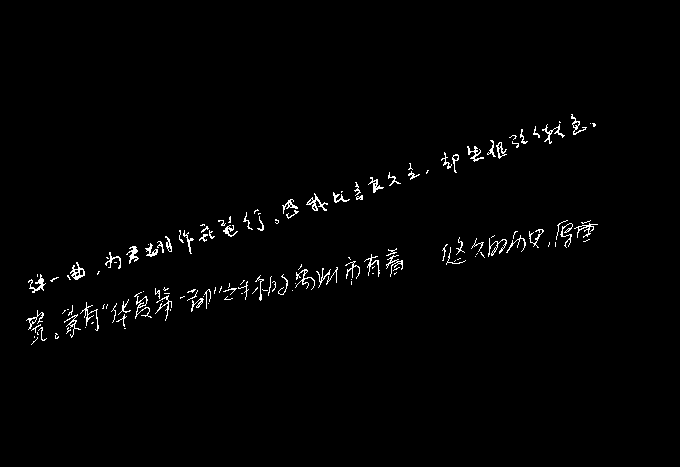 弹一曲，为君翻作琵琶行。感我此言良久立，却坐促弦弦转急。
誉。素有“华夏第一都”之称的禹州市有着 悠久的历史，厚重